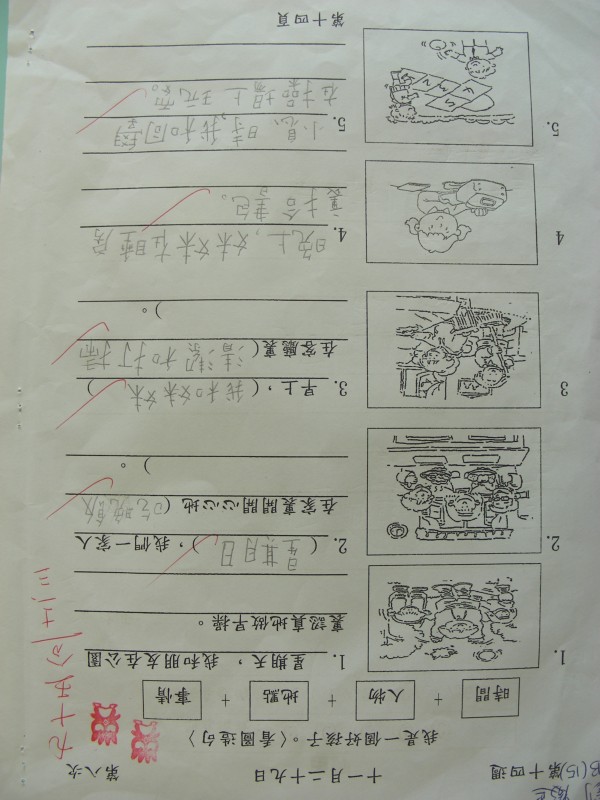 第十四週 十一月二十九日 第八次
我是一個好孩子。〈看圖造句〉
時間 + 人物 + 地點 + 事情
九十五分
1. 星期天，我和朋友在公園
裏認真地做早操。
2. (星期日)，我們一家人
在家裏開開心心地(吃晚飯
)。
3. 早上，(我和妹妹)
在客廳裏(清潔和打掃
)。
4. 晚上，妹妹在睡房
裏拾書包。
5. 小息時，我和同學
在操場上玩耍。
第十四頁